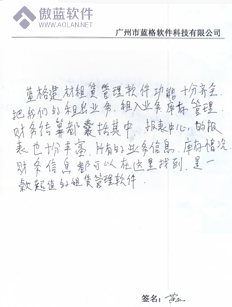 傲蓝软件
WWW.AOLAN.NET
广州市蓝格软件科技有限公司
蓝格建材租赁管理软件功能十分齐全
把我们的租赁业务，租入业务库存管理
财务结算都囊括其中，报表中心的报
表也十分丰富，所有的业务信息，库存情况
财务信息都可以在这里找到，是一
款超值的租赁管理软件。
签名：